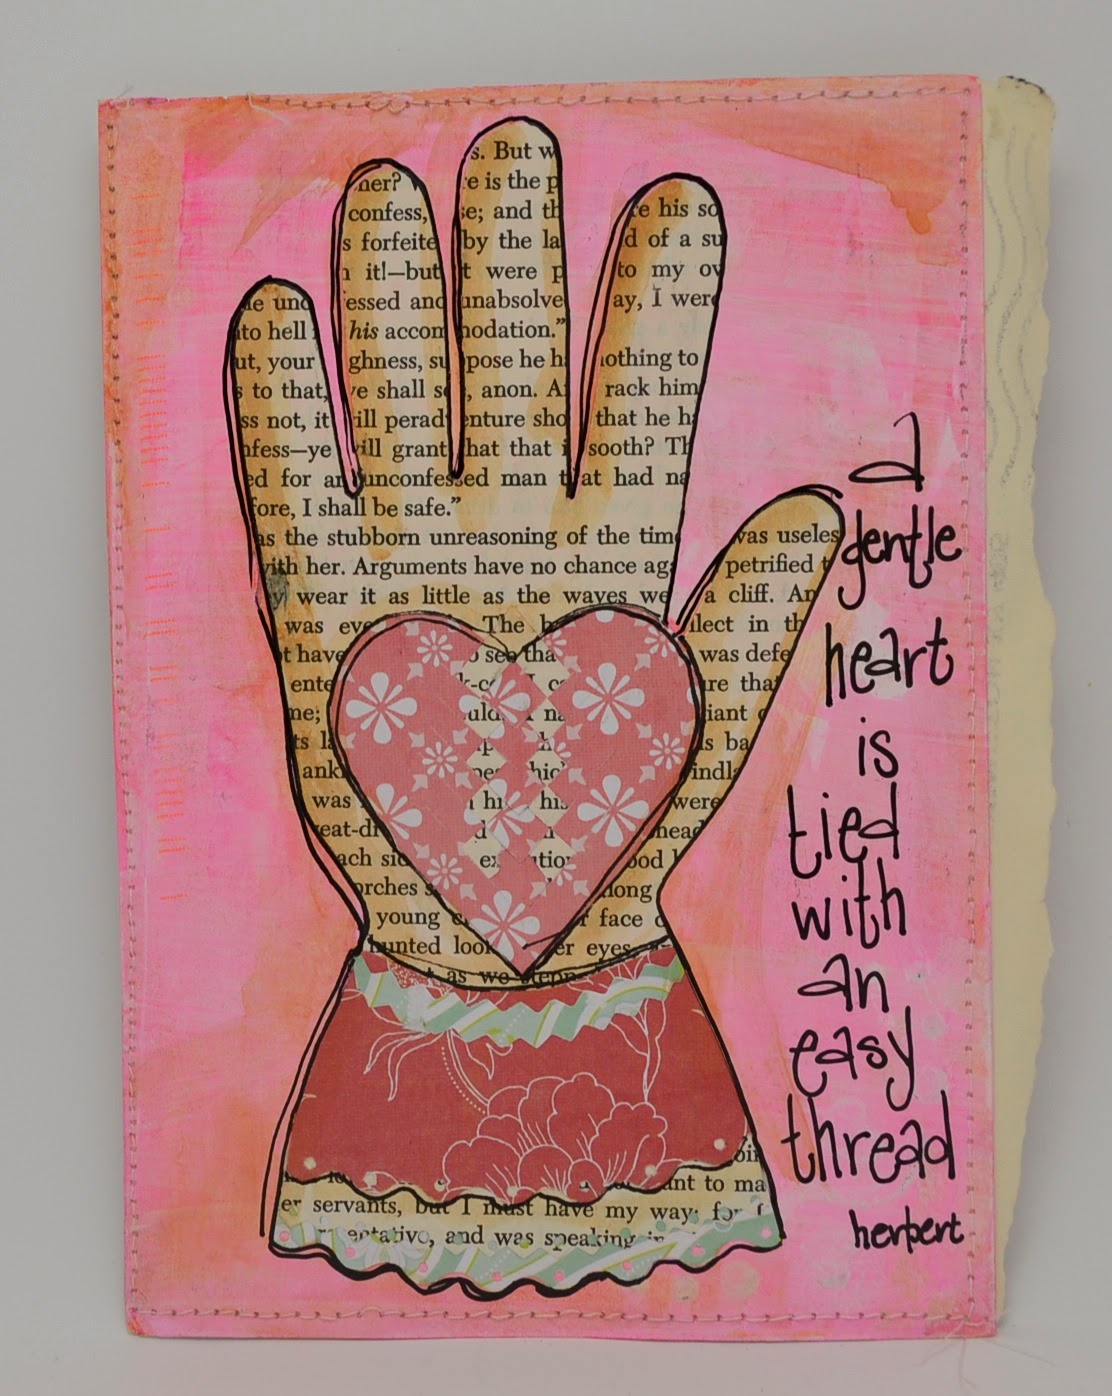 s. But w
her? e is the p
confess, se; and th re his so
s forfeite by the la d of a su
n it!—but t were p to my ov
le und essed and unabsolve ay, I were
to hell his accom modation.”
ut, your ghness, su pose he h nothing to
s to that, ve shall se, anon. A rack him
ss not, it ill perad enture sho that he ha
nfess—ye ill grant that that i sooth? Th
ed for an unconfessed man that had na
fore, I shall be safe.”
as the stubborn unreasoning of the time was useles
with her. Arguments have no chance aga petrified
wear it as little as the waves we a cliff. An
was eve The lect in th
t have to see tha was defe
ente k-c I c re tha
me; uld na iant
ts la s ba
ank hic indl
was hi his were
eat-d d head
ach sid ex ution ood
orches s long
young face
hunted look er eyes,
as we stepp
ant to ma
er servants, but I must have my way; for
entative, and was speaking in
a
gentle
heart
is
tied
with
an
easy
thread
herbert